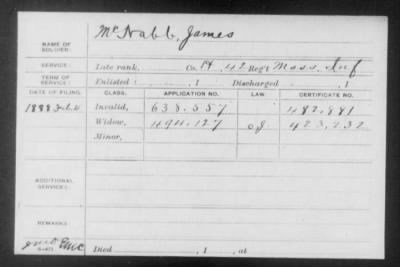 NAME OF SOLDIER: McNabb, James
SERVICE: Late rank, Co. 42 Reg't Mass. Inf
TERM OF SERVICE: Enlisted , 1 Discharged , 1
DATE OF FILING. CLASS. APPLICATION NO. LAW. CERTIFICATE NO.
1888 Invalid, 638.557 482.881
Widow, 494.127 423.232
Minor,
ADDITIONAL SERVICES:
REMARKS:
Died , 1 , at